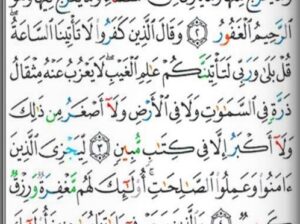 الرَّحِيمُ الْغَفُورُ ٢ وَقَالَ الَّذِينَ كَفَرُوا لَا تَأْتِينَا السَّاعَةُ
قُلْ بَلَىٰ وَرَبِّي لَتَأْتِيَنَّكُمْ عَالِمِ الْغَيْبِ لَا يَعْزُبُ عَنْهُ مِثْقَالُ
ذَرَّةٍ فِي السَّمَاوَاتِ وَلَا فِي الْأَرْضِ وَلَا أَصْغَرُ مِن ذَٰلِكَ
وَلَا أَكْبَرُ إِلَّا فِي كِتَابٍ مُّبِينٍ ٣ لِّيَجْزِيَ الَّذِينَ
آمَنُوا وَعَمِلُوا الصَّالِحَاتِ أُولَٰئِكَ لَهُم مَّغْفِرَةٌ وَرِزْقٌ